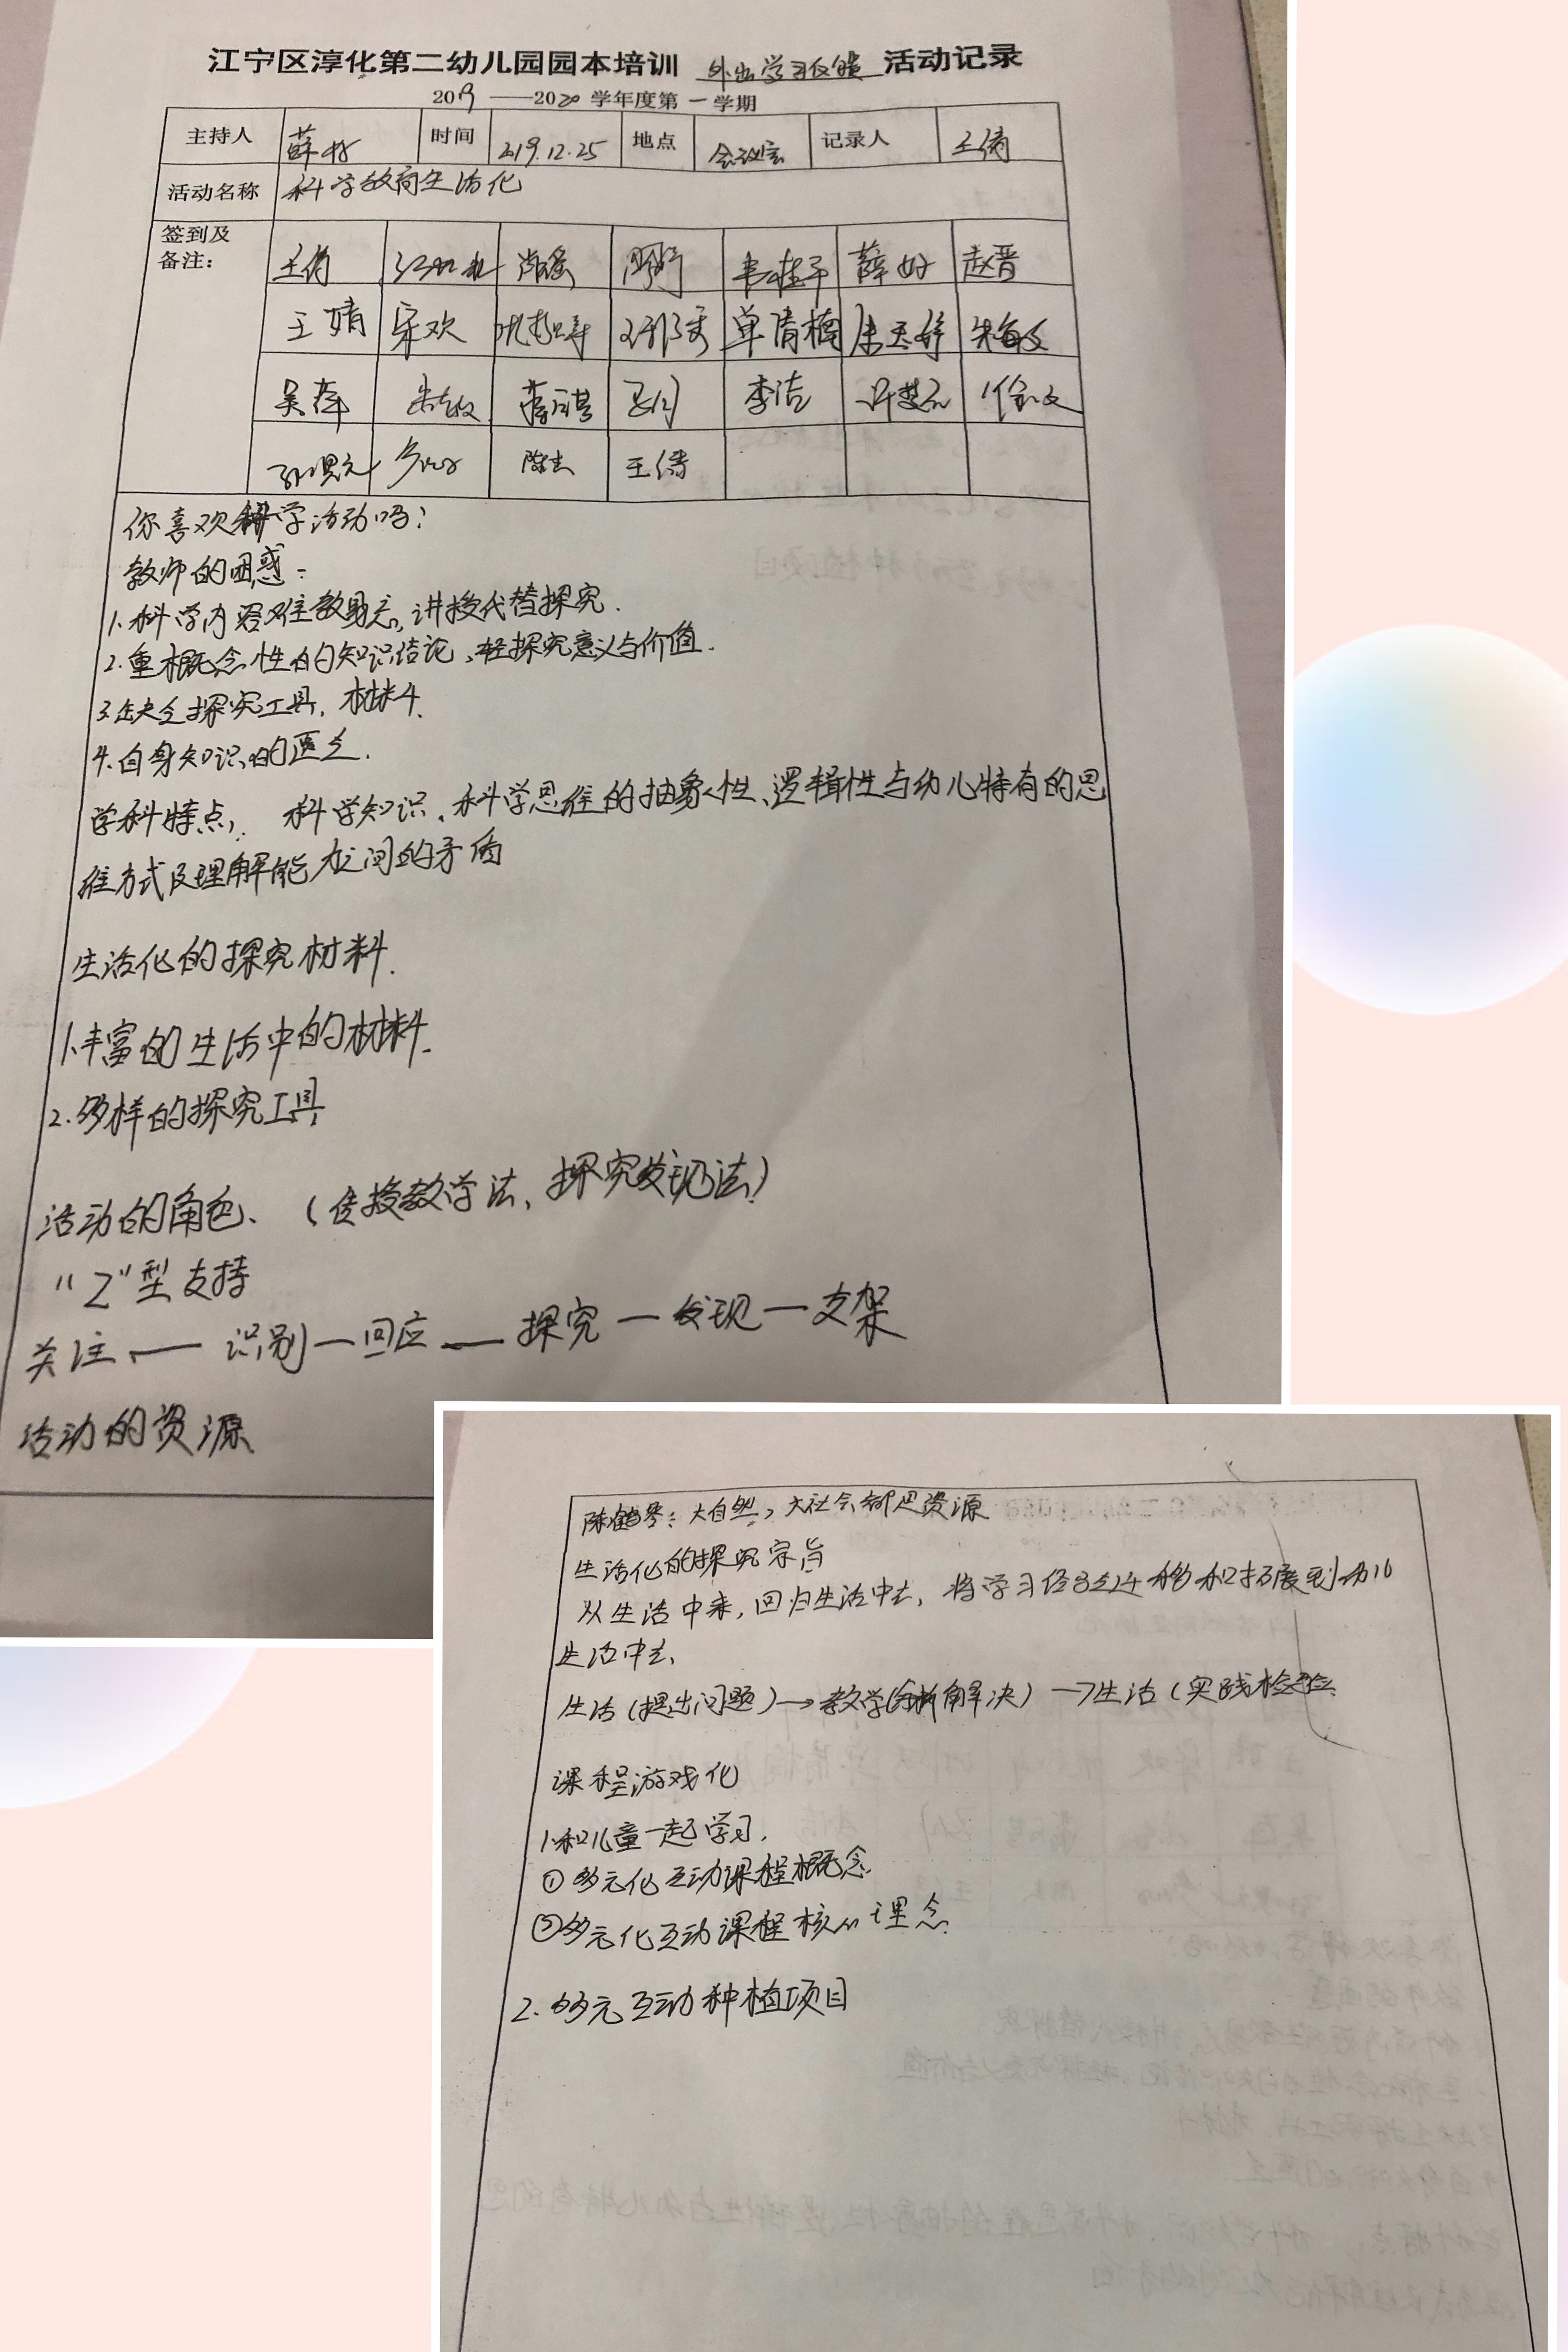 江宁区淳化第二幼儿园园本培训 外出学习反馈 活动记录
2019——2020 学年度第一学期
主持人 薛好 时间 2019.12.25 地点 会议室 记录人 王倩
活动名称 科学教育生活化
签到及
备注:
王倩 薛好 赵晋
王婧 宋欢 单倩楠
李洁
王倩
你喜欢科学活动吗?
教师的困惑:
1.科学内容难教 讲授代替探究.
2.重概念性的知识结论、轻探究意义与价值.
3.缺乏探究工具、材料.
4.自身知识的匮乏.
学科特点, 科学知识、科学思维的抽象性、逻辑性与幼儿特有的思
维方式及理解能力之间的矛盾
生活化的探究材料.
1.丰富的生活中的材料.
2.多样的探究工具
活动的角色、(传授教学法、探究发现法)
“Z”型支持
关注——识别—回应——探究—发现—支架
活动的资源
陈鹤琴:大自然,大社会都是资源
生活化的探究宗旨
从生活中来,回归生活中去,将学习经验迁移和拓展到幼儿
生活中去、
生活(提出问题)→教学(分析解决)→生活(实践检验
课程游戏化
1.和儿童一起学习.
①多元化互动课程概念
②多元化互动课程核心理念
2.多元互动种植项目